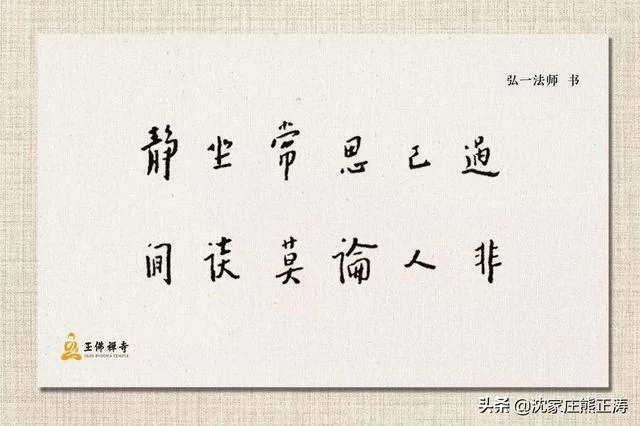 弘一法师 书
静坐常思己過
间谈莫論人非
玉佛禅寺
JADE BUDDHA TEMPLE
头条 @沈家庄熊正涛